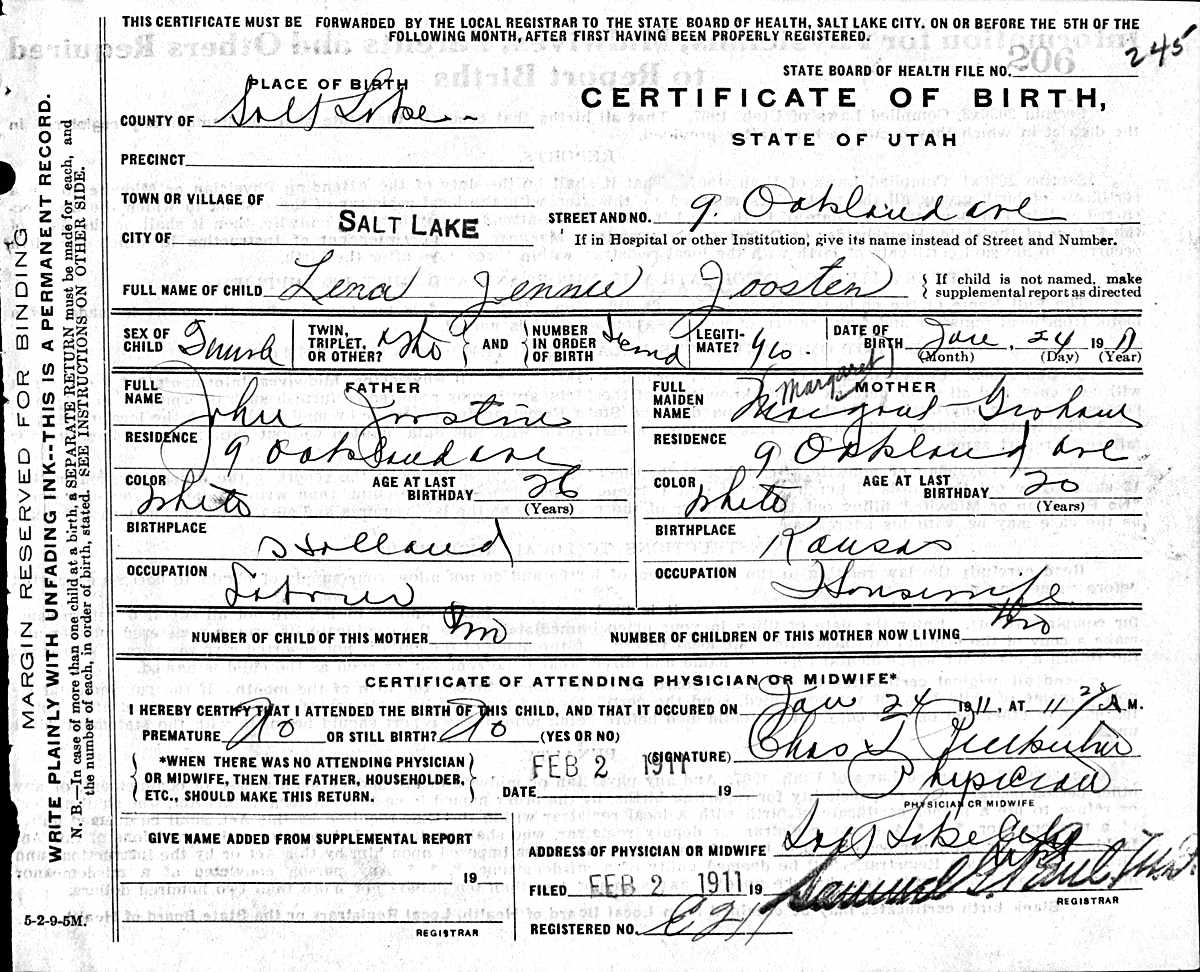 THIS CERTIFICATE MUST BE FORWARDED BY THE LOCAL REGISTRAR TO THE STATE BOARD OF HEALTH, SALT LAKE CITY, ON OR BEFORE THE 5TH OF THE
FOLLOWING MONTH, AFTER FIRST HAVING BEEN PROPERLY REGISTERED.
245
STATE BOARD OF HEALTH FILE NO.
PLACE OF BIRTH
CERTIFICATE OF BIRTH,
COUNTY OF Salt Lake
STATE OF UTAH
PRECINCT
TOWN OR VILLAGE OF
STREET AND NO. 9 Oakland ave
CITY OF SALT LAKE
If in Hospital or other Institution, give its name instead of Street and Number.
FULL NAME OF CHILD Lena Jennie Joosten
If child is not named, make
supplemental report as directed
SEX OF CHILD Female
TWIN, TRIPLET, OR OTHER? No
AND NUMBER IN ORDER OF BIRTH
LEGITIMATE? yes
DATE OF BIRTH Jan 24 1911
(Month) (Day) (Year)
FATHER
FULL NAME John Joosten
RESIDENCE 9 Oakland ave
COLOR White
AGE AT LAST BIRTHDAY 26
(Years)
BIRTHPLACE Holland
OCCUPATION Laborer
MOTHER
Margaret
FULL MAIDEN NAME Margaret Graham
RESIDENCE 9 Oakland ave
COLOR White
AGE AT LAST BIRTHDAY 20
(Years)
BIRTHPLACE Kansas
OCCUPATION Housewife
NUMBER OF CHILD OF THIS MOTHER Two
NUMBER OF CHILDREN OF THIS MOTHER NOW LIVING Two
CERTIFICATE OF ATTENDING PHYSICIAN OR MIDWIFE*
I HEREBY CERTIFY THAT I ATTENDED THE BIRTH OF THIS CHILD, AND THAT IT OCCURED ON Jan 24 1911, AT 11 A.M.
PREMATURE No OR STILL BIRTH? No (YES OR NO)
(SIGNATURE) Chas L
*WHEN THERE WAS NO ATTENDING PHYSICIAN
OR MIDWIFE, THEN THE FATHER, HOUSEHOLDER,
ETC., SHOULD MAKE THIS RETURN.
FEB 2 1911
DATE 19
Physician
PHYSICIAN OR MIDWIFE
GIVE NAME ADDED FROM SUPPLEMENTAL REPORT
19
REGISTRAR
ADDRESS OF PHYSICIAN OR MIDWIFE Salt Lake City
FILED FEB 2 1911 19 Samuel G. Paul
REGISTRAR
REGISTERED NO.
5-2-9-5M.
MARGIN RESERVED FOR BINDING
WRITE PLAINLY WITH UNFADING INK--THIS IS A PERMANENT RECORD.
N. B.—In case of more than one child at a birth, a SEPARATE RETURN must be made for each, and
the number of each, in order of birth, stated. SEE INSTRUCTIONS ON OTHER SIDE.